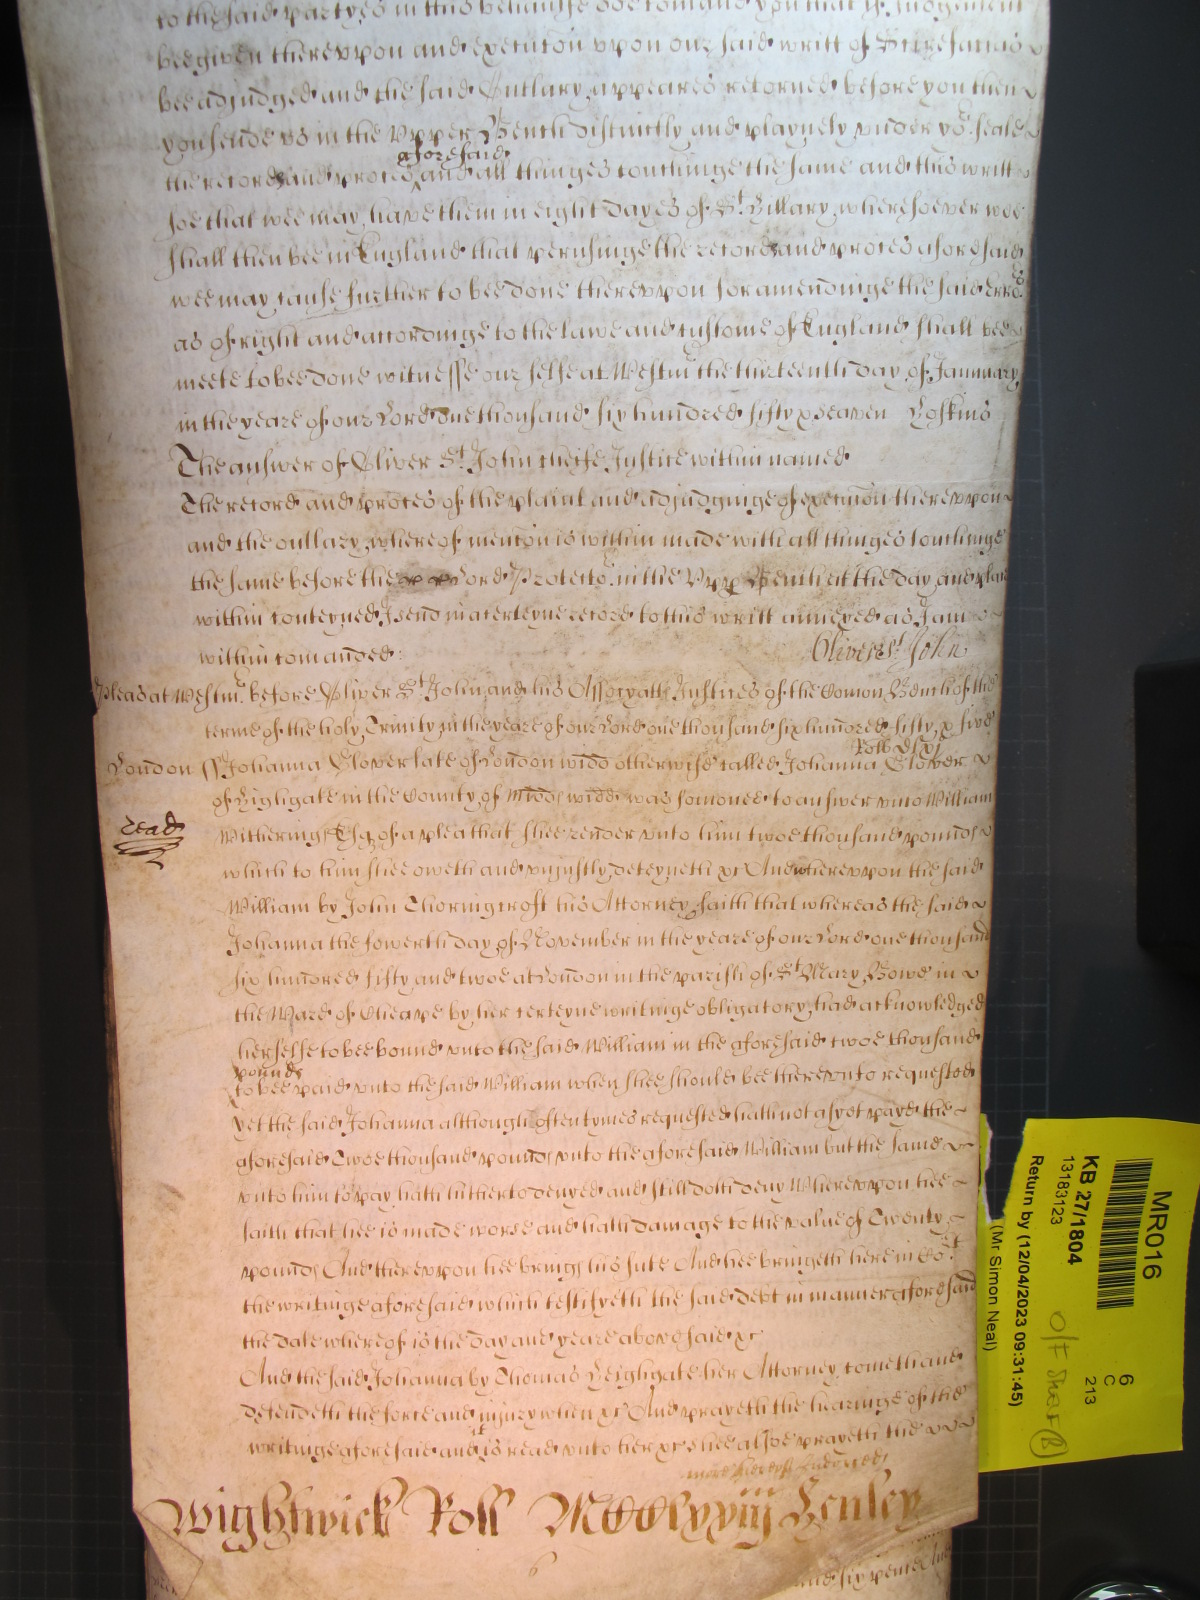 to the said partyes in this behalfe doe comand you that if Judgement
bee given thereuppon and execucon uppon our said writt of Scire facias
bee adjudged and the said Outlary appeares retorned before you then
you sende us in the Upper Bench distinctly and playnely under yor. seale
aforesaid
the record and proces and all thinges touchinge the same and this writt
soe that wee may have them in eight dayes of St. Hillary wheresoever wee
shall then bee in England that perusinge the record and proces aforesaid
wee may cause further to bee done thereuppon for amendinge the said erro
as of right and accordinge to the lawe and custome of England shall bee
meete to bee done witnesse our selfe at Westmr. the thirteenth day of January
in the yeare of our Lord one thousand six hundred fifty & seaven Hoskins
The answer of Oliver St. John cheife Justice within named
The record and proces of the plaint and adjudginge of execucon thereuppon
and the outlary whereof mencon is within made with all thinges touchinge
the same before the Lord Protector in the Upp Bench at the day and place
within conteyned I send in a certeyne record to this writt annexed as I am
within comanded
Oliver St. John
Pleas at Westmr. before Oliver St. John and his Associats Justices of the Comon Bench of the
terme of the holy Trinity in the yeare of our Lord one thousand six hundred fifty & five
London ss Johanna Glover late of London widd otherwise called Johanna Glover
of Highgate in the County of Midd widd was somoned to answer unto William
read
Witherings Esq of a plea that shee render unto him twoe thousand pounds
which to him shee oweth and unjustly deteyneth &c And whereuppon the said
William by John Thoringcroft his Attorney saith that whereas the said
Johanna the fowerth day of November in the yeare of our Lord one thousand
six hundred fifty and twoe at London in the parish of St. Mary Bowe in
the Ward of Cheape by her certeyne writinge obligatory had acknowledged
herselfe to bee bound unto the said William in the aforesaid twoe thousand
pounds
to bee paid unto the said William when shee should bee thereunto requested
yet the said Johanna although oftentymes requested hath not as yet payd the
aforesaid Twoe thousand pounds unto the aforesaid William but the same
unto him to pay hath hitherto denyed and still doth deny Whereuppon hee
saith that hee is made worse and hath damage to the value of Twenty
pounds And thereuppon hee brings his sute And hee bringeth here in Cort
the writinge aforesaid which testifyeth the said dept in manner aforesaid
the date whereof is the day and yeare abovesaid &c
And the said Johanna by Thomas Heighgate her Attorney cometh and
defendeth the force and injury when &c And prayeth the hearinge of the
writinge aforesaid and it is read unto her &c shee alsoe prayeth the
Wightwick Roll
Henley
6
and six pence And
MR016
KB 27/1804
13183123
Return by (12/04/2023 09:31:45)
(Mr Simon Neal)
6
C
213